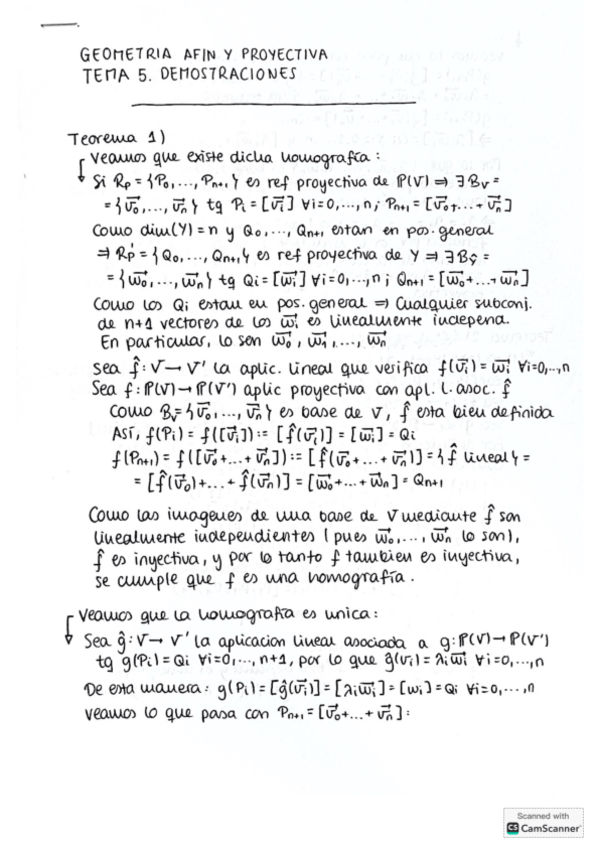 GEOMETRIA AFIN Y PROYECTIVA
TEMA 5. DEMOSTRACIONES
Teorema 1)
Veamos que existe dicha homografía:
Si Rp = {P₀,..., Pₙ₊₁} es ref proyectiva de ℙ(V) ⇒ ∃ Bᵥ =
= {v⃗₀,..., v⃗ₙ} tq Pᵢ = [v⃗ᵢ] ∀i=0,...,n; Pₙ₊₁ = [v⃗₀+...+v⃗ₙ]
Como dim(Y) = n y Q₀,..., Qₙ₊₁ estan en pos. general
⇒ Rp' = {Q₀,..., Qₙ₊₁} es ref proyectiva de Y ⇒ ∃ B_Ŷ =
= {w⃗₀,..., w⃗ₙ} tq Qᵢ = [w⃗ᵢ] ∀i=0,...,n; Qₙ₊₁ = [w⃗₀+...+w⃗ₙ]
Como los Qᵢ estan en pos. general ⇒ Cualquier subconj.
de n+1 vectores de los w⃗ᵢ es linealmente independ.
En particular, lo son w⃗₀, w⃗₁,..., w⃗ₙ
Sea f̂: V → V' la aplic. lineal que verifica f(v⃗ᵢ) = w⃗ᵢ ∀i=0,...,n
Sea f: ℙ(V) → ℙ(V') aplic proyectiva con apl. l. asoc. f̂
Como Bᵥ = {v⃗₀,..., v⃗ₙ} es base de V, f̂ esta bien definida
Así, f(Pᵢ) = f([v⃗ᵢ]) := [f̂(v⃗ᵢ)] = [w⃗ᵢ] = Qᵢ
f(Pₙ₊₁) = f([v⃗₀+...+v⃗ₙ]) := [f̂(v⃗₀+...+v⃗ₙ)] = {f̂ lineal} =
= [f̂(v⃗₀)+...+f̂(v⃗ₙ)] = [w⃗₀+...+w⃗ₙ] = Qₙ₊₁
Como las imagenes de una base de V mediante f̂ son
linealmente independientes (pues w⃗₀,..., w⃗ₙ lo son),
f̂ es inyectiva, y por lo tanto f tambien es inyectiva,
se cumple que f es una homografía.
Veamos que la homografía es unica:
Sea ĝ: V → V' la aplicacion lineal asociada a g: ℙ(V) → ℙ(V')
tq g(Pᵢ) = Qᵢ ∀i=0,..., n+1, por lo que ĝ(vᵢ) = λᵢw⃗ᵢ ∀i=0,...,n
De esta manera: g(Pᵢ) = [ĝ(v⃗ᵢ)] = [λᵢw⃗ᵢ] = [wᵢ] = Qᵢ ∀i=0,...,n
Veamos lo que pasa con Pₙ₊₁ = [v⃗₀+...+v⃗ₙ]:
Scanned with
CS CamScanner